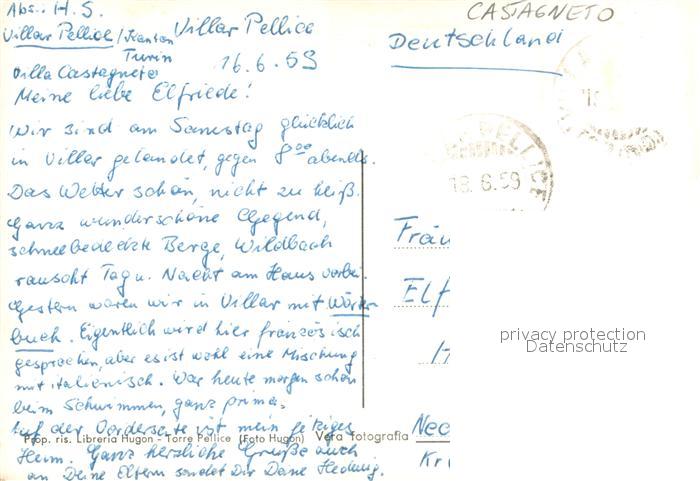 Abs.: H. S.
Villar Pellice / Kanton
Turin
Villa Castagneto
Villar Pellice
16.6.59
CASTAGNETO
Deutschland
Meine liebe Elfriede!
Wir sind am Samstag glücklich
in Villar gelandet, gegen 8 00 abends.
Das Wetter schön, nicht zu heiß.
Ganz wunderschöne Gegend,
schneebedeckte Berge, Wildbach
rauscht Tag u. Nacht am Haus vorbei.
Gestern waren wir in Villar mit Wörter
buch. Eigentlich wird hier französisch
gesprochen, aber es ist wohl eine Mischung
mit italienisch. War heute morgen schon
beim Schwimmen, ganz prima.
Auf der Vorderseite ist mein jetziges
Heim. Ganz herzliche Grüße auch
an Deine Eltern sendet Dir Deine Hedwig.
Prop. ris. Libreria Hugon - Torre Pellice (Foto Hugon) Vera fotografia
PELLICE
18.6.59
Fräu
Elf
Nec
Kr
privacy protection
Datenschutz